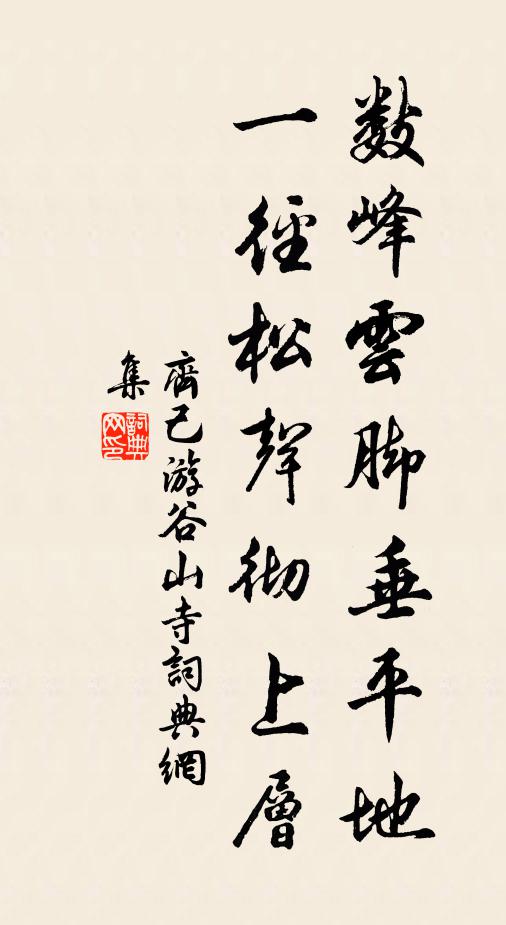 數峰雲脚垂平地
一徑松聲彻上層
齊己游谷山寺詞典網
集
詞典网印